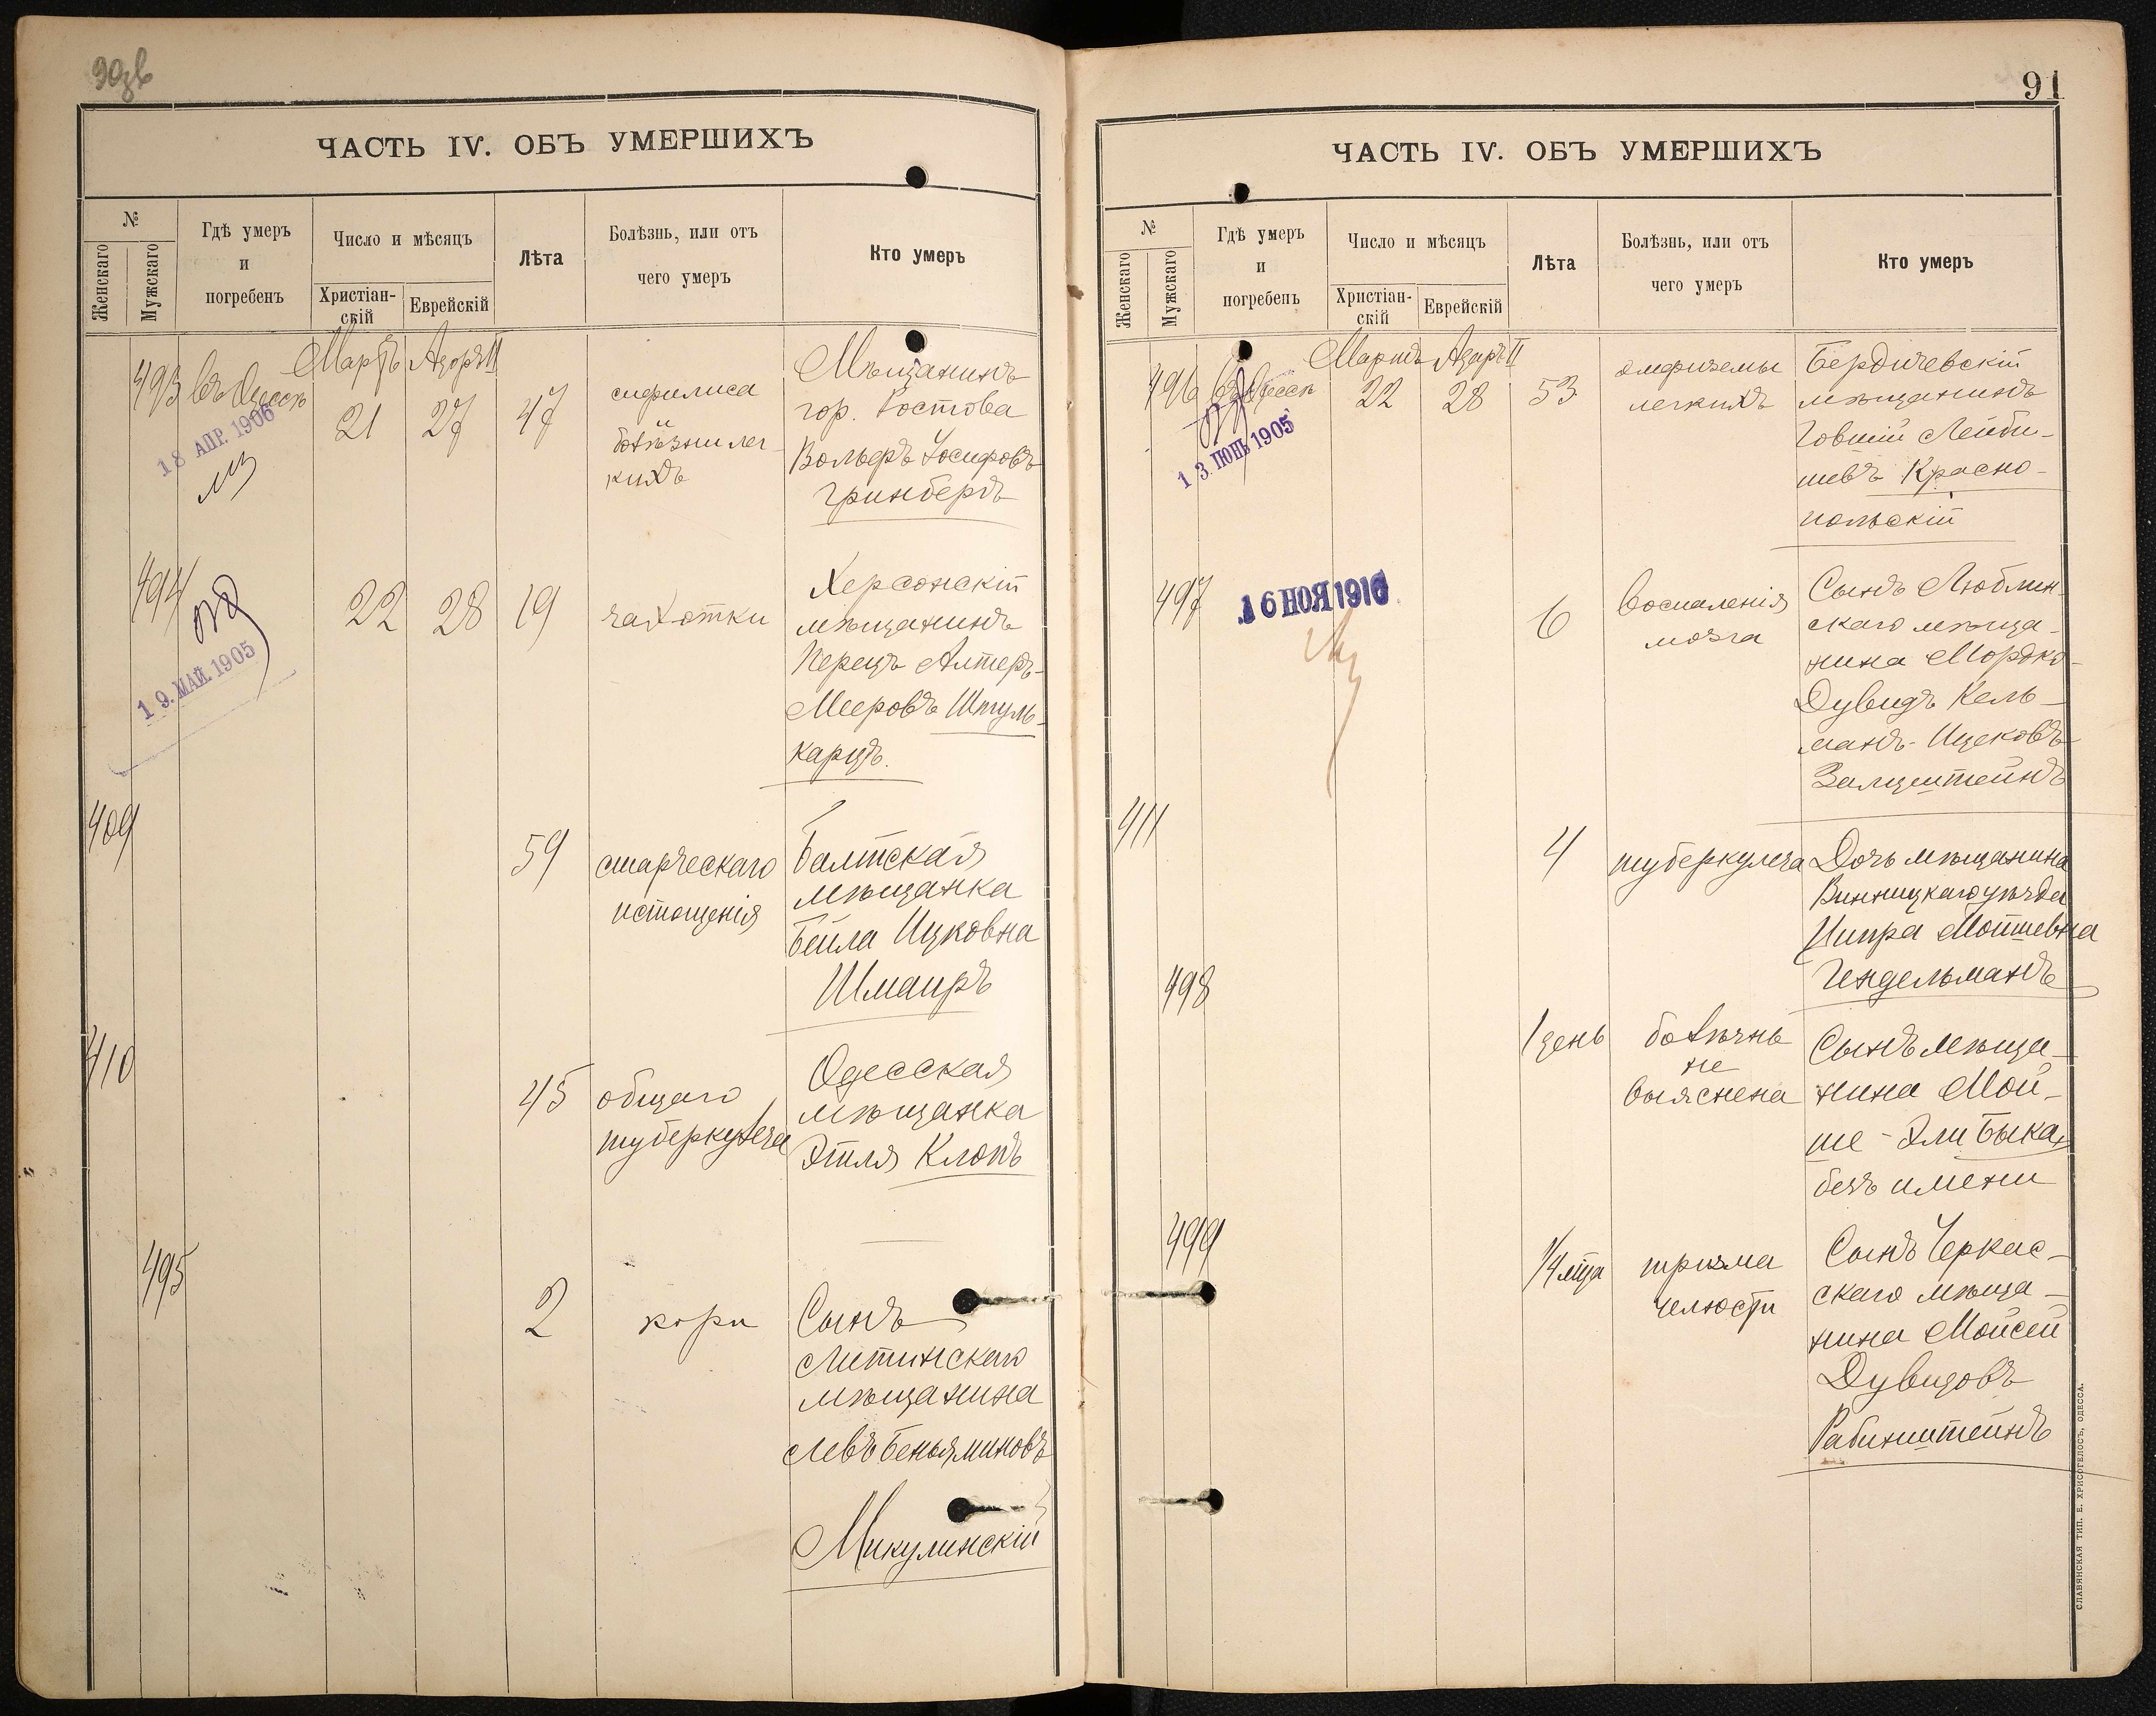 90об
ЧАСТЬ IV. ОБЪ УМЕРШИХЪ
№
Женскаго
Мужскаго
Гдѣ умеръ
и
погребенъ
Число и мѣсяцъ
Христіан-
скій
Еврейскій
Лѣта
Болѣзнь, или отъ
чего умеръ
Кто умеръ
493
въ Одессѣ
Мартъ
Адаръ II
21
27
47
сифилиса
и
болѣзни лег
кихъ
Мѣщанинъ
гор. Ростова
Вольфъ Іосифовъ
Гринбергъ
18 АПР. 1906
494
22
28
19
чахотки
Херсонскій
мѣщанинъ
Перецъ Алтеръ-
Мееровъ Штуль-
карцъ.
19. МАЙ. 1905
409
59
старческаго
истощенія
Балтская
мѣщанка
Бейла Ицковна
Шмаиръ
410
45
общаго
туберкулеза
Одесская
мѣщанка
Этля Клопъ
495
2
кори
Сынъ
Литинскаго
мѣщанина
Левъ Беньяминовъ
Микулинскій
91
ЧАСТЬ IV. ОБЪ УМЕРШИХЪ
№
Женскаго
Мужскаго
Гдѣ умеръ
и
погребенъ
Число и мѣсяцъ
Христіан-
скій
Еврейскій
Лѣта
Болѣзнь, или отъ
чего умеръ
Кто умеръ
496
въ Одессѣ
Мартъ
Адаръ II
22
28
53
эмфиземы
легкихъ
Бердичевскій
мѣщанинъ
Говшій Лейби-
шевъ Красно-
польскій
13. ІЮНЬ 1905
497
16 НОЯ 1916
6
воспаленія
мозга
Сынъ Люблин-
скаго мѣща-
нина Мордко-
Дувидъ Кель-
манъ-Ицековъ
Залцштейнъ
411
4
туберкулеза
Дочь мѣщанина
Винницкаго уѣзда
Ципра Мошиевна
Гендельманъ
498
1 день
болѣзнь
не
выяснена
Сынъ мѣща-
нина Мой-
ше-Эли Быка,
безъ имени
499
1/4 м-ца
тризма
челюсти
Сынъ Черкас-
скаго мѣща-
нина Мойсей
Дувидовъ
Рабинштейнъ
СЛАВЯНСКАЯ ТИП. Е. ХРИСОГЕЛОСЪ, ОДЕССА.